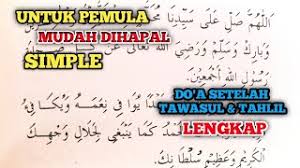 UNTUK PEMULA
MUDAH DIHAPAL
SIMPLE
اَللّٰهُمَّ صَلِّ عَلَى سَيِّدِنَا
وَبَارِكْ وَسَلِّمْ وَرَضِيَ اللهُ تَعَالَى عَنْ
رَسُولِ اللهِ أَجْمَعِينَ
DO'A SETELAH
TAWASUL & TAHLIL
LENGKAP
يُوَافِي نِعَمَهُ وَيُكَافِئُ
الْحَمْدُ كَمَا يَنْبَغِي لِجَلَالِ وَجْهِكَ
الْكَرِيمِ وَعَظِيمِ سُلْطَانِكَ